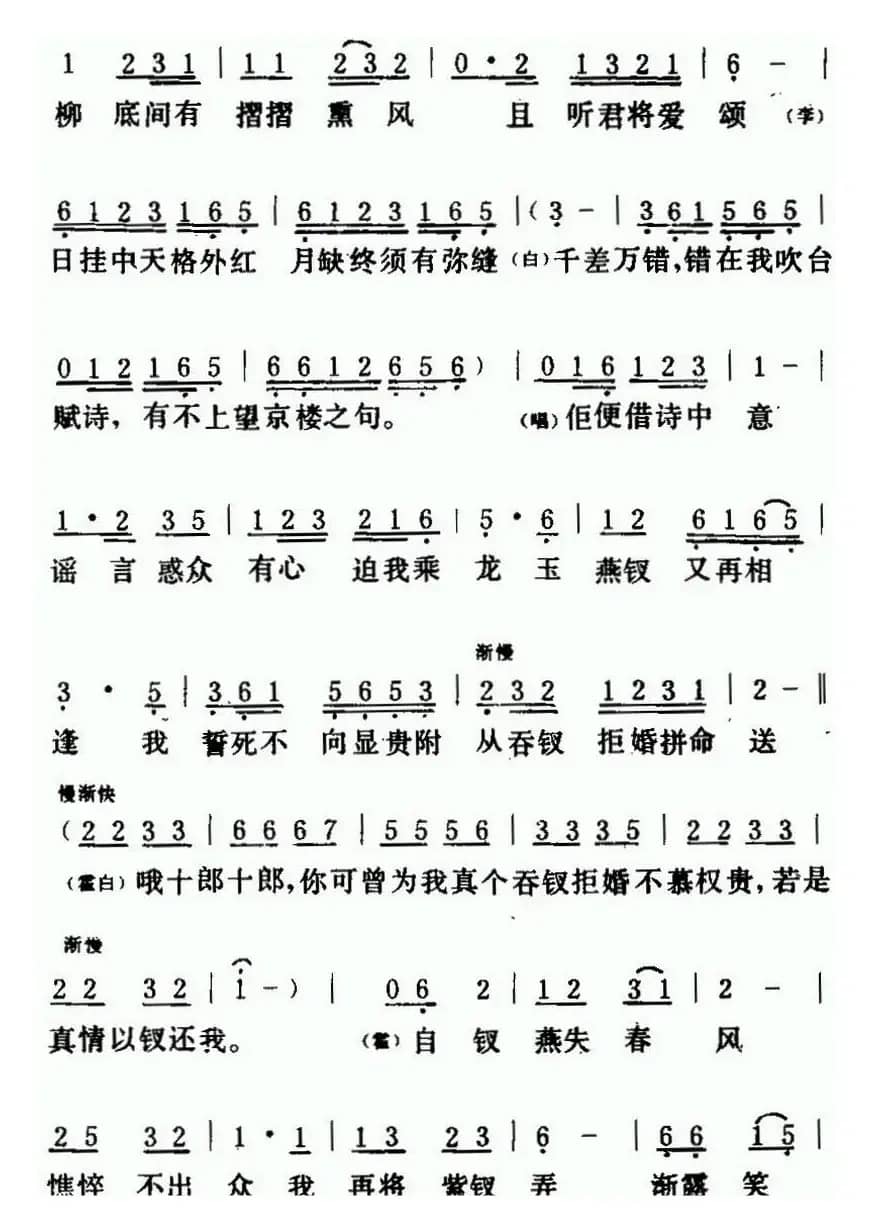 1 231 | 11 232 | 0·2 1321 | 6 - |
柳 底间有 摺摺 熏 风 且 听君将爱 颂 (李)
6123 165 | 6123 165 | (3 - | 361 565 |
日挂中天格外红 月缺终须有弥缝 (白) 千差万错,错在我吹台
012 165 | 6612 656) | 016 123 | 1 - |
赋诗, 有不上望京楼之句。 (唱) 佢便借诗中 意
1·2 35 | 123 216 | 5·6 | 12 6165 |
谣 言 惑众 有心 迫我乘 龙 玉 燕钗 又再相
渐慢
3·5 | 361 5653 | 232 1231 | 2 - ‖
逢 我 誓死不 向显贵附 从吞钗 拒婚拼命 送
慢渐快
(22 33 | 66 67 | 55 56 | 33 35 | 22 33 |
(霍白) 哦十郎十郎,你可曾为我真个吞钗拒婚不慕权贵,若是
渐慢
22 32 | 1 -) | 06 2 | 12 31 | 2 - |
真情以钗还我。 (霍) 自 钗 燕失 春 风
25 32 | 1·1 | 13 23 | 6 - | 66 15 |
憔悴 不出 众 我 再将 紫钗 弄 渐露 笑